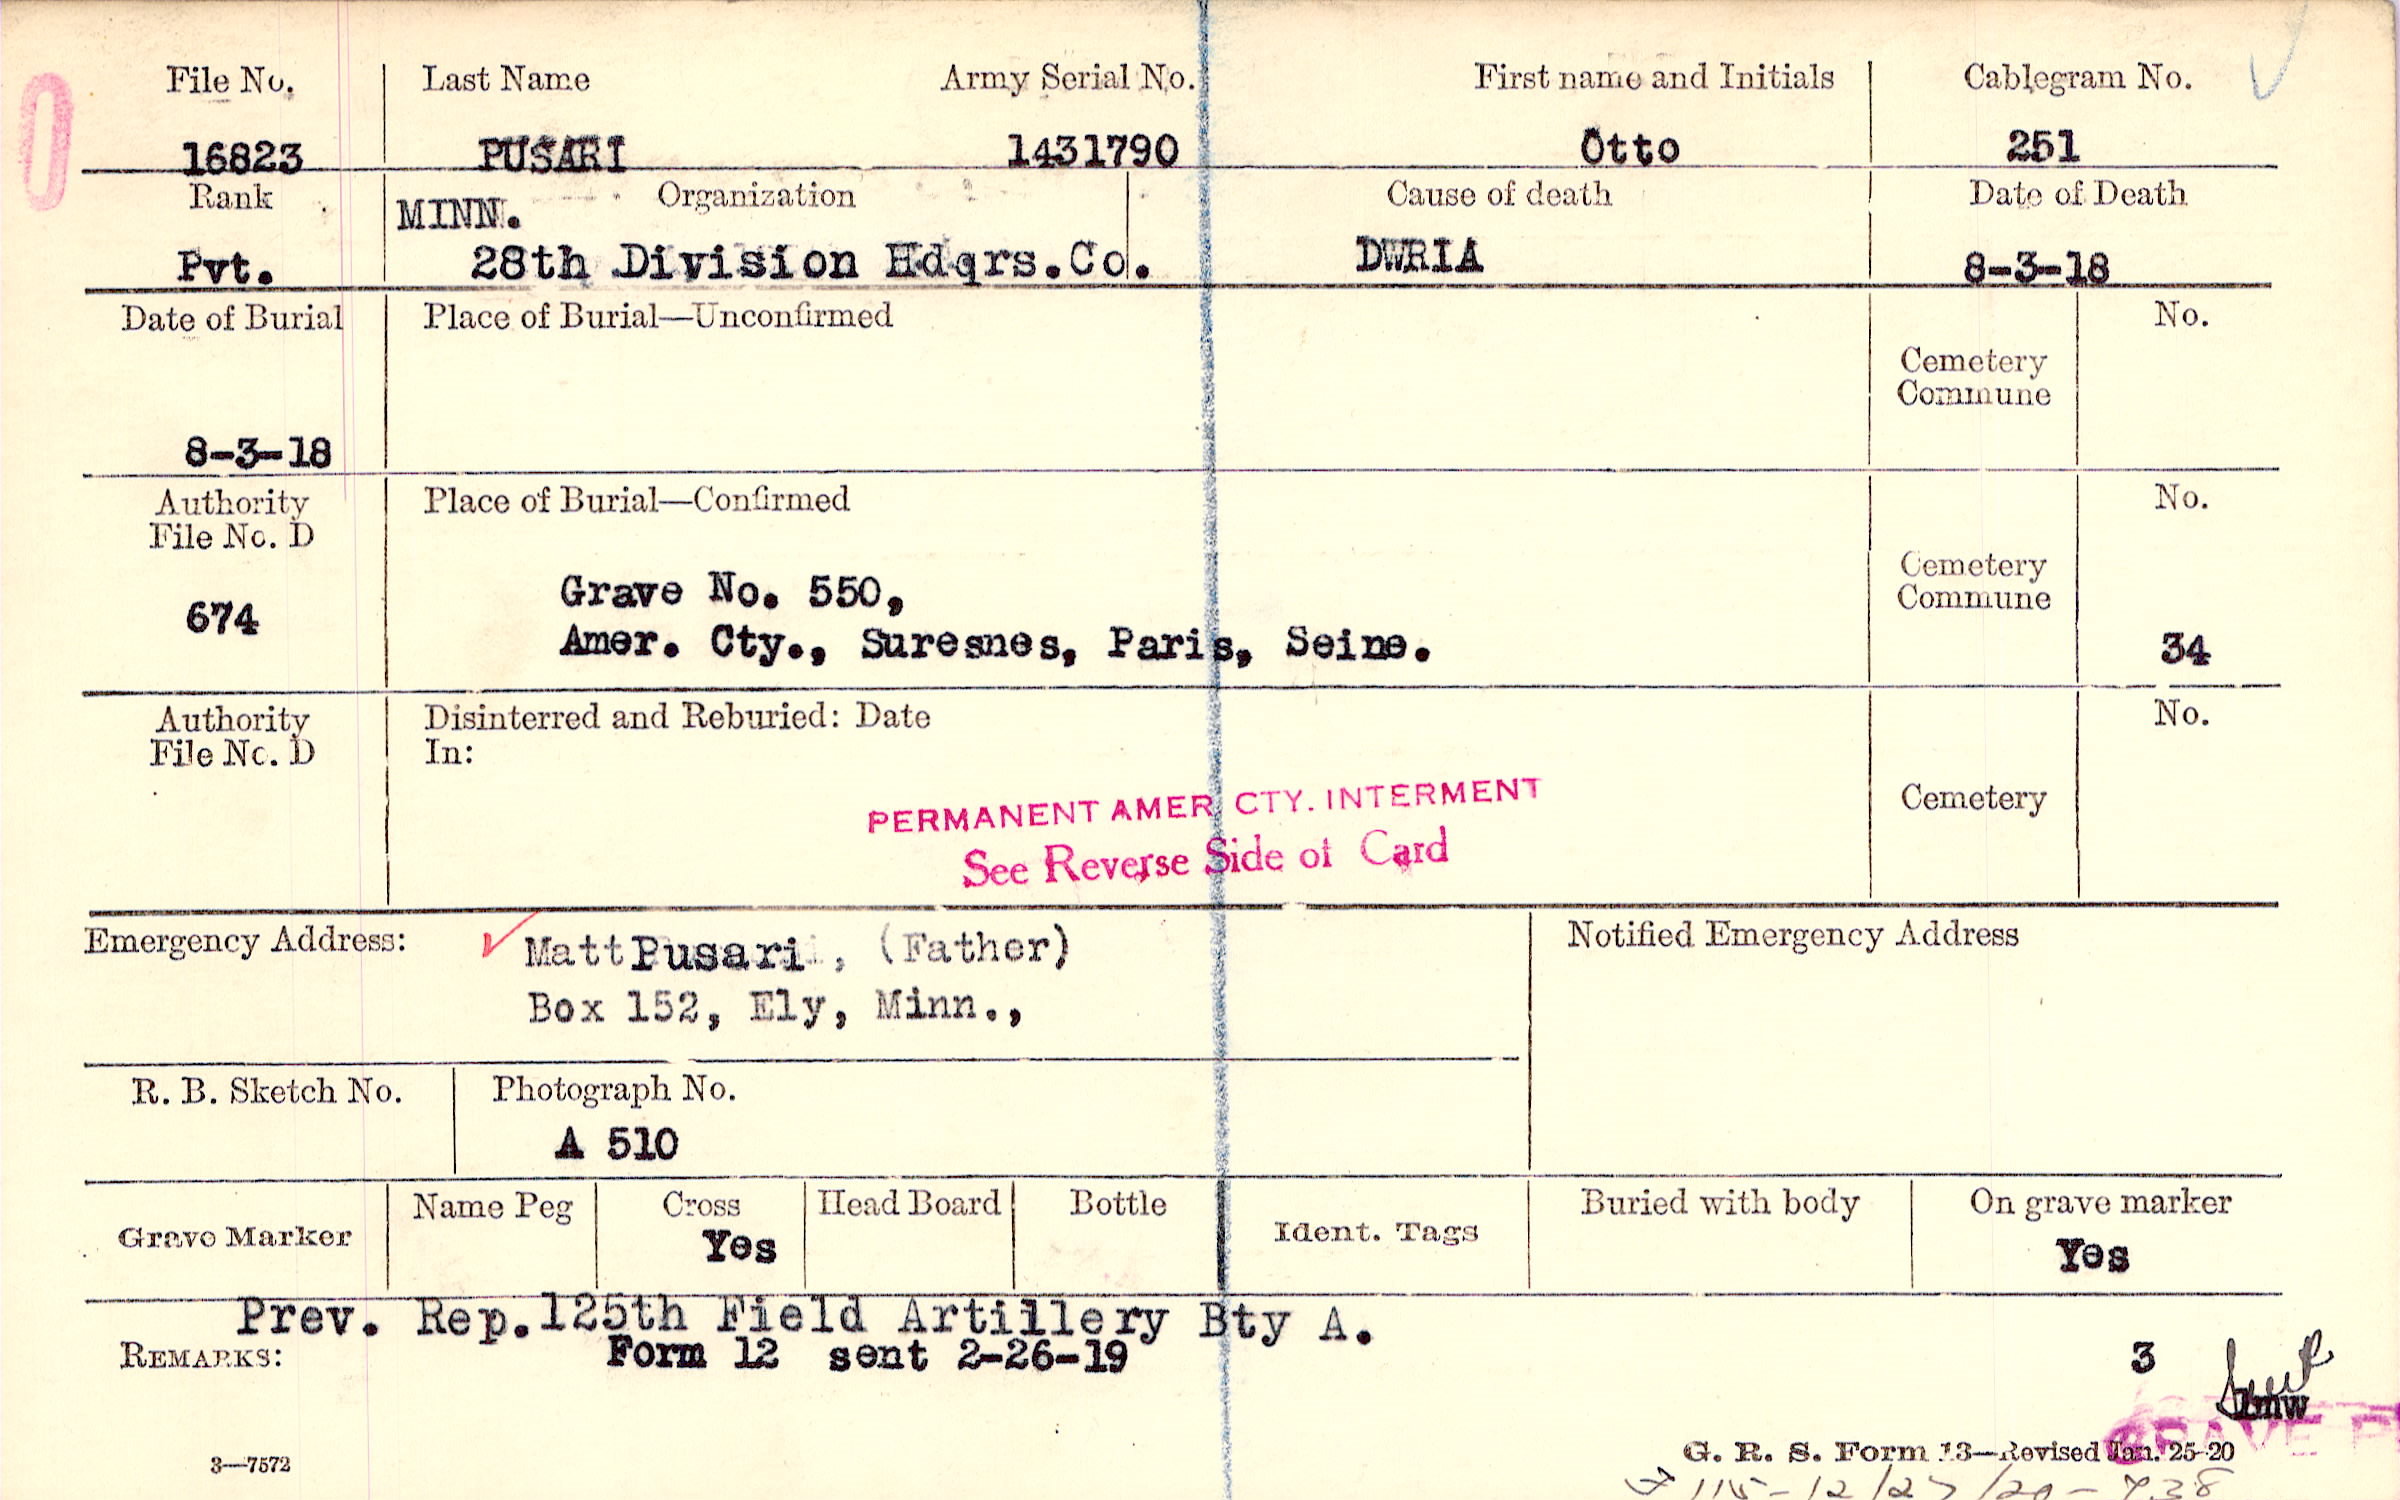 File No. Last Name Army Serial No. First name and Initials Cablegram No.
16823 PUSARI 1431790 Otto 251
Rank MINN. Organization Cause of death Date of Death
Pvt. 28th Division Hdqrs.Co. DWRIA 8-3-18
Date of Burial Place of Burial—Unconfirmed No.
Cemetery
Commune
8-3-18
Authority Place of Burial—Confirmed No.
File No. D
Grave No. 550, Cemetery
674 Commune
Amer. Cty., Suresnes, Paris, Seine. 34
Authority Disinterred and Reburied: Date No.
File No. D In:
PERMANENT AMER. CTY. INTERMENT Cemetery
See Reverse Side of Card
Emergency Address: Matt Pusari, (Father) Notified Emergency Address
Box 152, Ely, Minn.,
R. B. Sketch No. Photograph No.
A 510
Grave Marker Name Peg Cross Head Board Bottle Ident. Tags Buried with body On grave marker
Yes Yes
Prev. Rep. 125th Field Artillery Bty A.
REMARKS: Form 12 sent 2-26-19 3
lmw
3—7572 G. R. S. Form 13—Revised Jan. 25-20